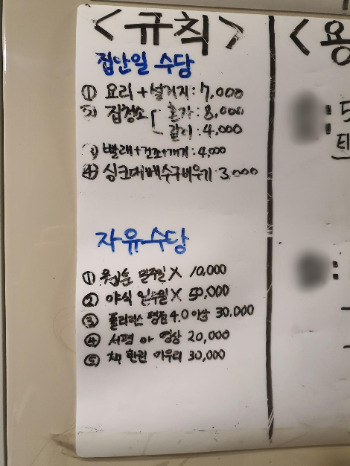 <규칙> <용
집난일 수당
① 요리 + 설거지 : 7,000
② 집청소 [ 혼자 : 8,000
같이 : 4,000
③ 빨래 + 건조 + 개기 : 4,000
④ 싱크대배수구비우기 3,000
자유수당
① 일주일 X 10,000
② 야식 일주일 X 50,000
③ 평점 4.0 이상 30,000
④ 서평 or 영상 20,000
⑤ 책 한권 마무리 30,000